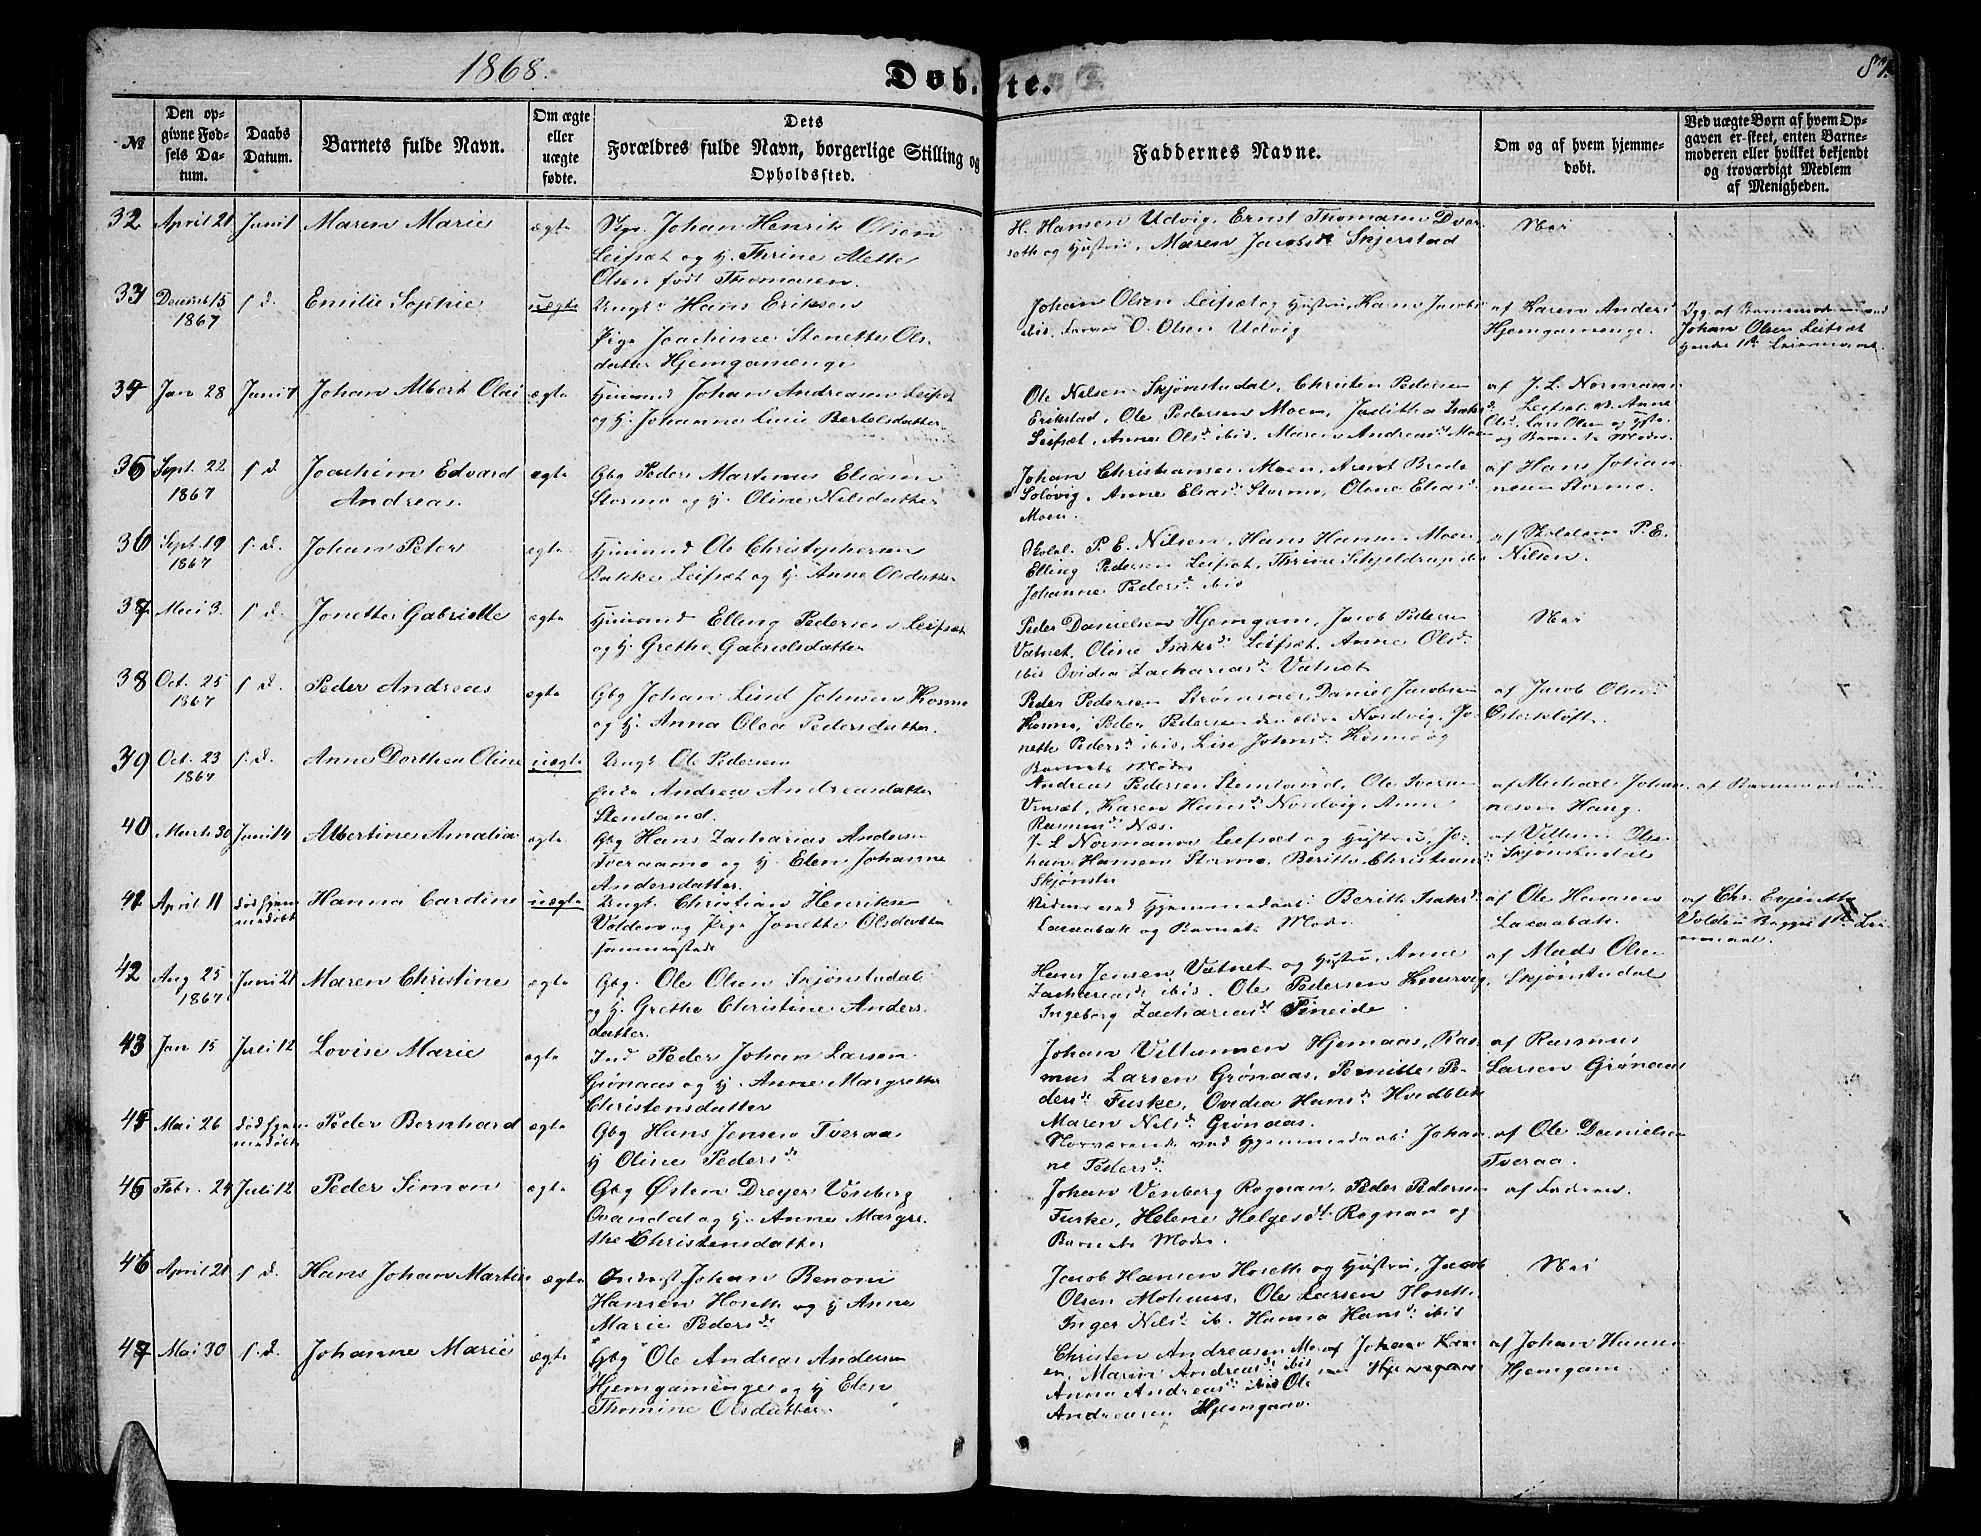 1868.
Døbte.
87.
№
Den opgivne Fødsels Datum.
Daabs Datum.
Barnets fulde Navn.
Om ægte eller uægte fødte.
Dets Forældres fulde Navn, borgerlige Stilling og Opholdssted.
Faddernes Navne.
Om og af hvem hjemmedøbt.
Ved uægte Børn af hvem Opgaven er skeet, enten Barnemoderen eller hvilket bekjendt og troværdigt Medlem af Menigheden.
32 April 21 Juni 1 Maren Marie ægte Johan Henrik Olsen
Leifsæt og h. Thrine Alette
Olsen født Thomasen
H. Hansen Udvig, Ernst Thomasen
og Hustru, Maren Jacobsd. Skjerstad
Nei
33 Decemb 15 1867 s. d. Emilie Sophie uægte Ungk. Hans Eriksen
Pige Joachime Stenette Ols-
datter Hjemgamenge
Johan Olsen Leifsæt og Hustru, Hans Jacobs
ibid, O. Olsen Udvig
af Karen Anders
Hjemgamenge.
Johan Olsen Leifsæt
34 Jan 28 Juni 1 Johan Albert Olai ægte Huusmand Johan Andreasen Leifsæt
og h. Johanna Lucie Bertelsdatter
Ole Nilsen Skjønstudal, Christen Pedersen
Erikstad, Ole Pedersen Moen, Juditha Isaks d.
Leifsæt, Anne Ols d. ibid, Maren Andreas d. Moen
af J. L. Normann
Leifsæt Anne
Ols d. Lars Olsen og
og Barnets Moder.
35 Sept. 22 1867 s. d. Joachim Edvard
Andreas.
ægte Gbg Peder Martinus Eliasen
Stormo og h. Oline Nilsdatter
Johan Christiansen Moen, Arent Brodo
Solövig, Anne Elias d. Stormo, Olene Elias d.
Moen.
af Hans Johan-
nesen Stormo.
36 Sept. 19 1867 s. d. Johan Peter ægte Huusmand Ole Christophersen
Bakke Leifsæt og h. Anne Olsdatter
Skolel. P. E. Nilsen, Hans Hansen Moen,
Elling Pedersen Leifsæt, Thrine Schjeldrup ibid
Johanne Peders d. ibid
af Skolelærer P. E.
Nilsen.
37 Mai 3. s. d. Jonette Gabrielle ægte Huusmand Elling Pedersen Leifsæt
og h. Grethe Gabrielsdatter
Peder Danielsen Hjemgam, Jacob Pedersen
Vatnet, Oline Isaks d. Leifsæt, Anne Ols d.
ibid Ovidia Zacharias d. Vatnet
Nei
38 Oct. 25 1867 s. d. Peder Andreas ægte Gbg Johan Lind Johnsen Kosmo
og h. Anna Olea Pedersdatter.
Peder Pedersen Strømsnes, Daniel Jacobsen
Kosmo, Peder Pedersen den eldre Nordvig, Jo-
nette Peders d. ibid, Lise Johns d. Kosmo og
Barnets Moder
af Jacob Olsen
Österkløft.
39 Oct. 23 1867 s. d. Anne Dorthea Oline uægte Ungk. Ole Pedersen
Enke Andrea Andreasdatter
Stemland.
Andreas Pedersen Stemland, Ole Iversen
Vensæt, Karen Hans d. Nordvig, Anne
Rasmus d. Næs.
af Michael Johan-
nesen Haug.
af Barnemoderen
40 Marts 30 Juni 14 Albertine Amalia ægte Gbg Hans Zacharias Andersen
Tveraamo og h. Elen Johanne
Andersdatter.
J. L. Normann Leifsæt og Hustru, Jo-
han Hansen Stormo, Beritte Christians d.
Skjønstu
af Villum Olsen
Skjønstudal
41 April 11 død hjem-
medøbt Hanna Cardine uægte Ungk. Christian Henriksen
Volden og Pige Jonette Olsdatter
sammesteds
Vidne ved Hjemmedaab: Berith Isaks d.
Laxaabak og Barnets Moder
af Ole Hansen
Laxaabak.
af Chr. Evjenth
42 Aug 25 1867 Juni 21 Maren Christine ægte Gbg. Ole Olsen Skjønstudal
og h. Grethe Christine Anders-
datter.
Hans Jensen Vatnet og Hustru, Anne
Zacharias d. ibid. Ole Pedersen Knurvig,
Ingeborg Zacharias d. Fineide
af Mads Olsen
Skjønstudal
43 Jan 15 Juli 12 Lovise Marie ægte Ind Peder Johan Larsen
Grønaas og h. Anne Margrethe
Christensdatter
Johan Villumsen Hjemaas, Ras-
mus Larsen Grønaas, Pernitte Pe-
ders d. Fuske, Ovidia Hans d. Hvidblik
Maren Nils d. Grønaas.
af Rasmus
Larsen Grønaas
44 Mai 26 død hjem-
medøbt Peder Bernhard ægte Gbg Hans Jensen Tveraa
h Oline Peders d.
Nærværende ved Hjemmedaab: Johan-
ne Peders d.
af Ole Danielsen
Tveraa.
45 Febr. 24 Juli 12 Peder Simon ægte Gbg Østen Dreyer Venberg
Ovandal og h. Anne Margre-
the Christensdatter
Johan Venberg Rognan, Peder Pedersen
Fuske, Helene Helges d. Rognan og
Barnets Moder.
af Faderen.
46 April 21 s. d. Hans Johan Martin ægte Inderst Johan Benoni
Hansen Hoseth og h Anne
Marie Peders d.
Jacob Hansen Hoseth og Hustru, Jacob
Olsen Mohuus, Ole Larsen Hoseth
Inger Nils d. ib. Hanna Hans d. ibid
Nei
47 Mai 30 s. d. Johanne Marie ægte Gbg Ole Andreas Andersen
Hjemgamenge og h Elen
Thomine Olsdatter.
Christen Andreasen Moen, Johan
Maren Andreas d. ibid
Anna Andreas d. ibid Ole
Andreasen Hjemgam.
af Johan Hansen
Hjemgam.